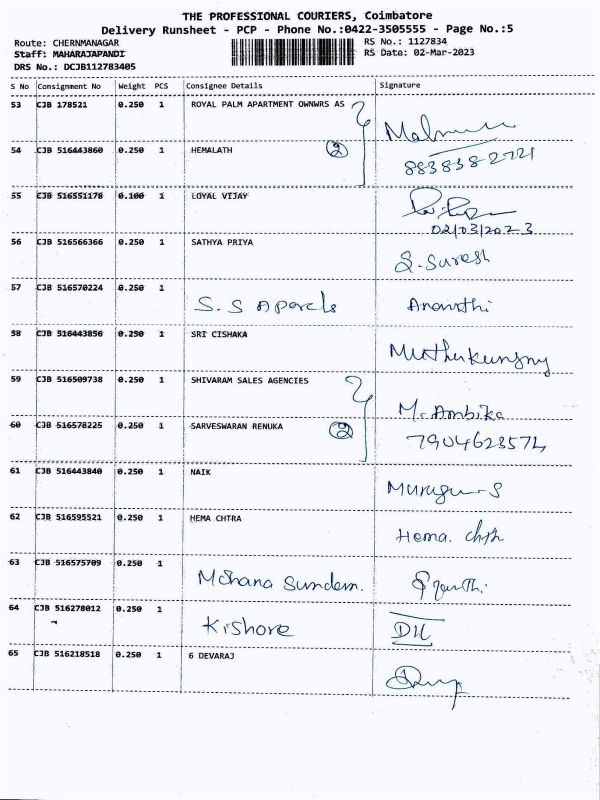 THE PROFESSIONAL COURIERS, Coimbatore
Delivery Runsheet - PCP - Phone No.:0422-3505555 - Page No.:5
Route: CHERNMANAGAR RS No.: 1127834
Staff: MAHARAJAPANDI RS Date: 02-Mar-2023
DRS No.: DCJB112783405
S No Consignment No Weight PCS Consignee Details Signature
53 CJB 178521 0.250 1 ROYAL PALM APARTMENT OWNWRS AS
54 CJB 516443860 0.250 1 HEMALATH 2 8838382721
55 CJB 516551178 0.100 1 LOYAL VIJAY
02/03/2023
56 CJB 516566366 0.250 1 SATHYA PRIYA S. Suresh
57 CJB 516570224 0.250 1 S. S Aparels Ananthi
58 CJB 516443856 0.250 1 SRI CISHAKA
59 CJB 516509738 0.250 1 SHIVARAM SALES AGENCIES M. Ambika
60 CJB 516578225 0.250 1 SARVESWARAN RENUKA 2 7904623574
61 CJB 516443840 0.250 1 NAIK
62 CJB 516595521 0.250 1 HEMA CHTRA Hema.
63 CJB 516575709 0.250 1 Mohana Sundem.
64 CJB 516278012 0.250 1 Kishore
65 CJB 516218518 0.250 1 G DEVARAJ